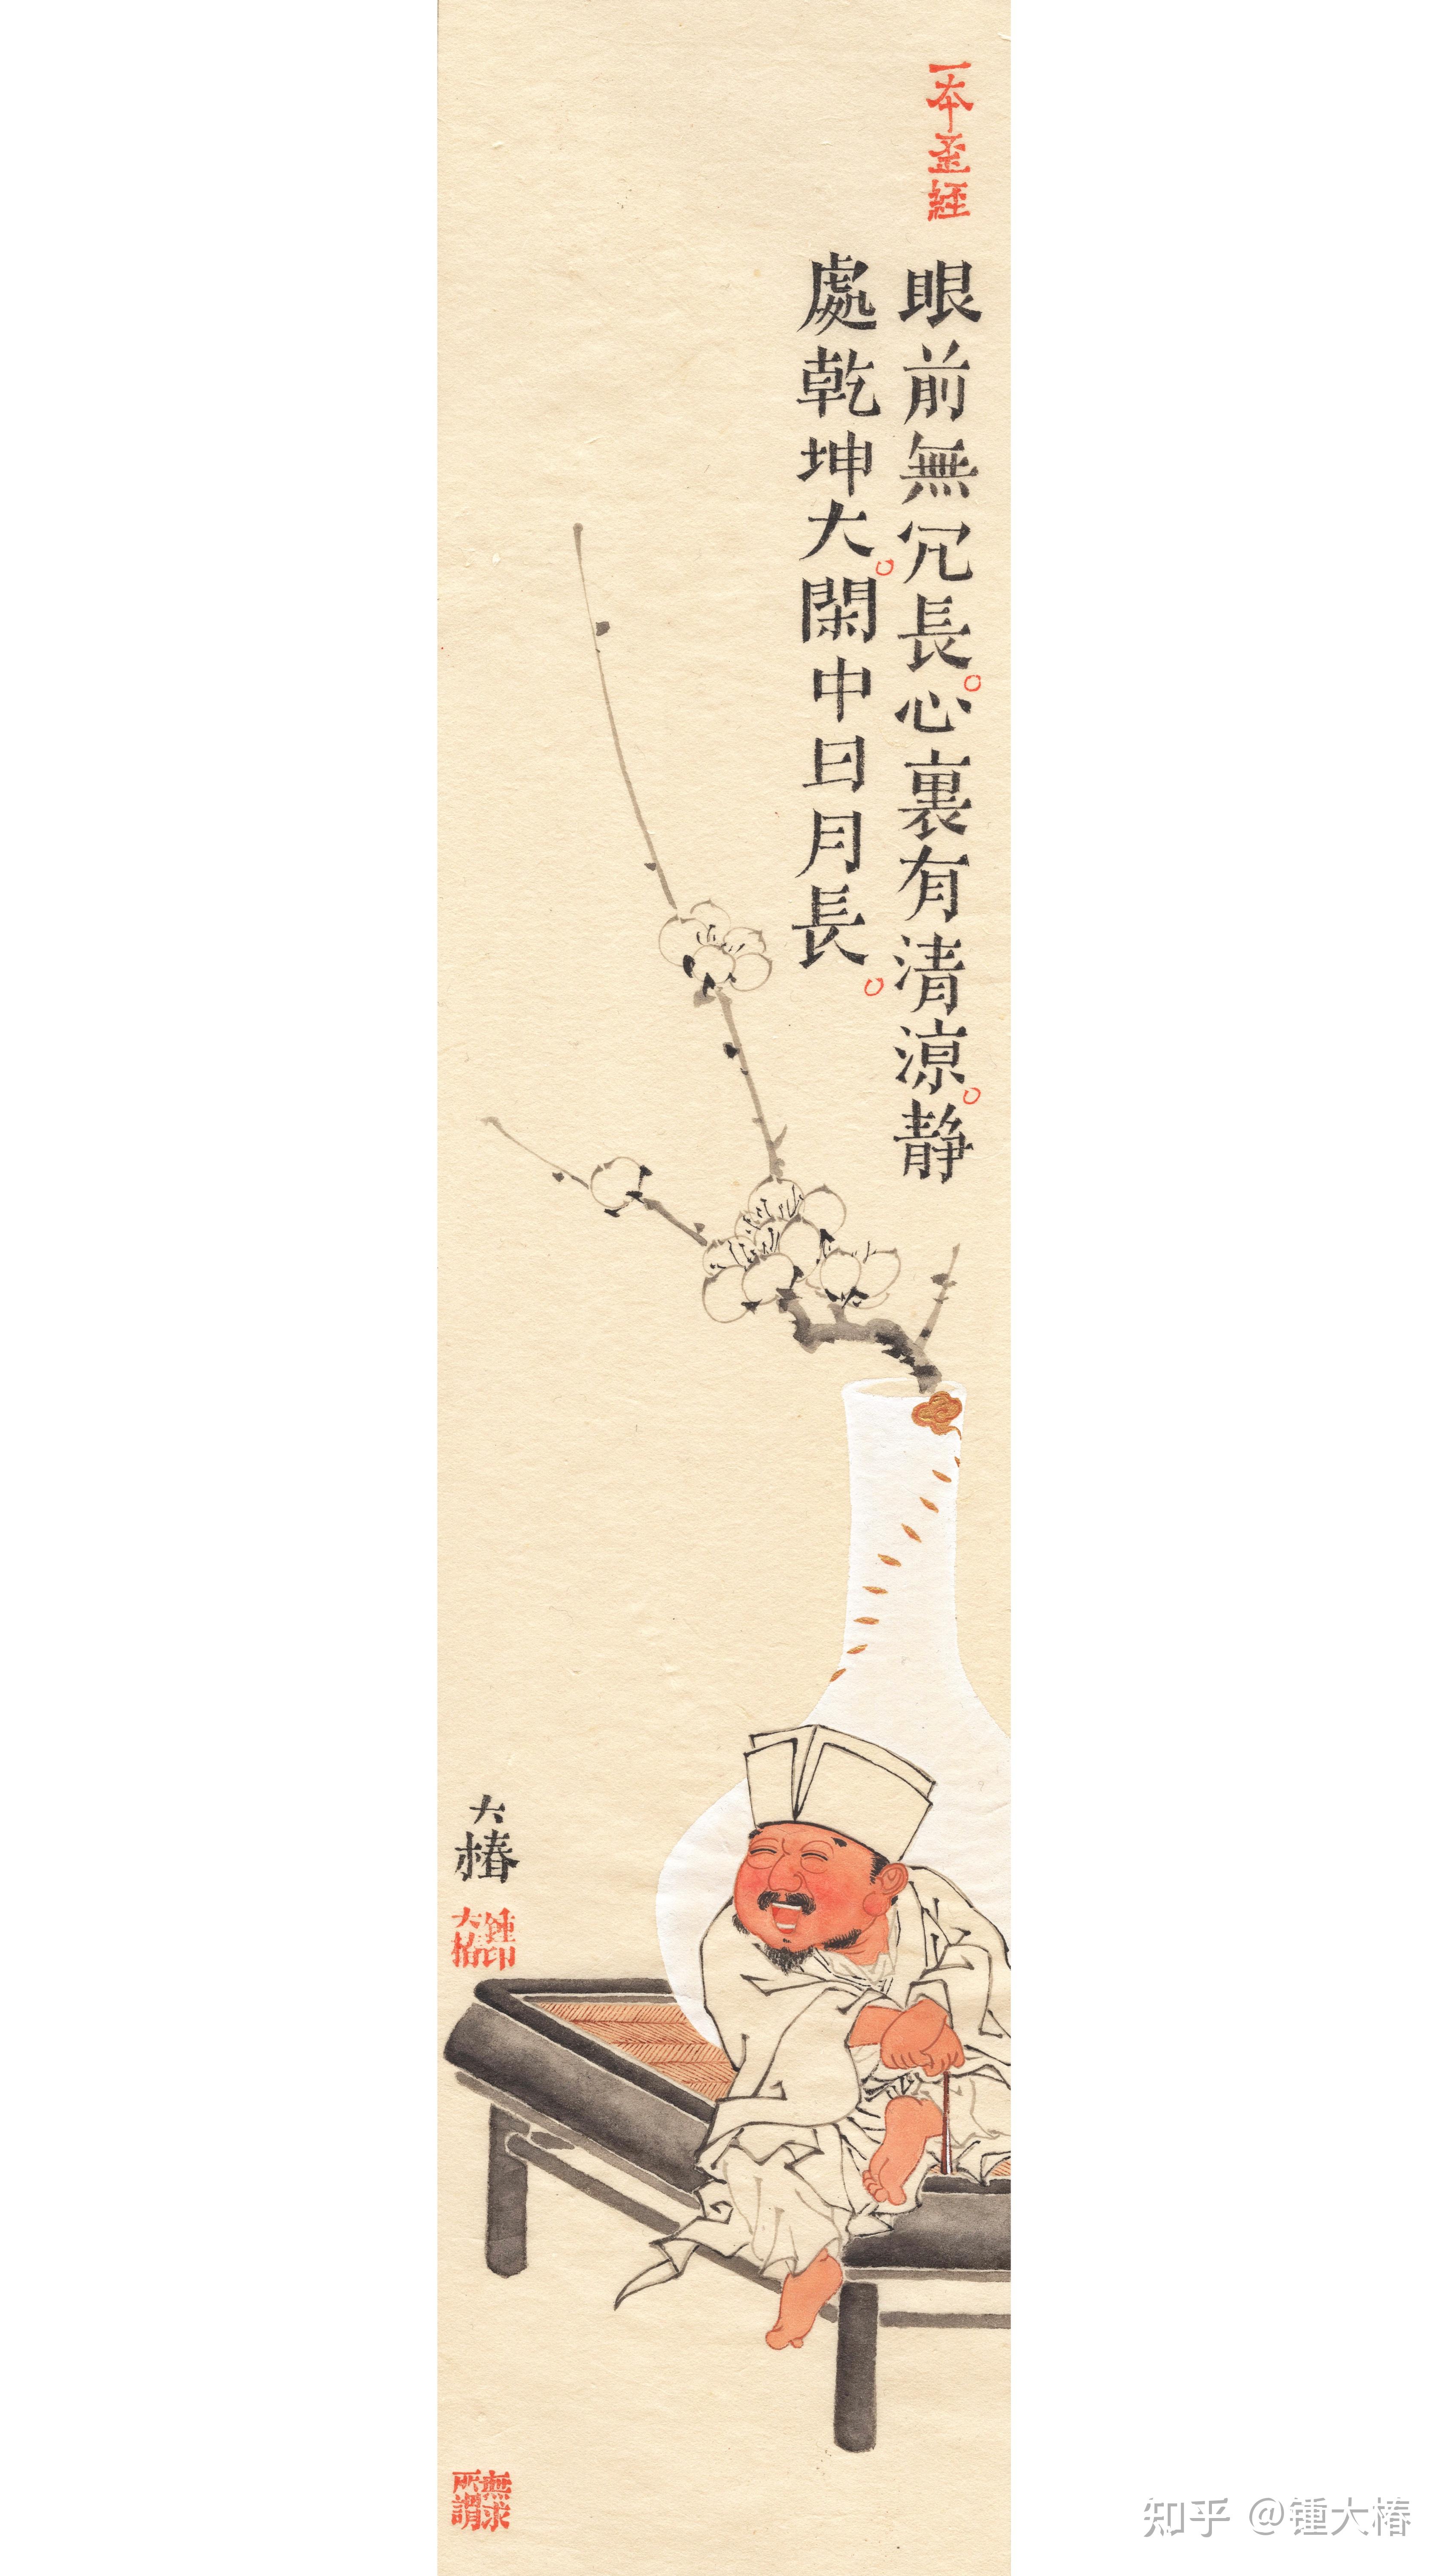 一本歪經
眼前無冗長。心裏有清涼。静
處乾坤大。閑中日月長。
大椿
鍾印
大椿
無求
所謂
知乎 @锺大椿